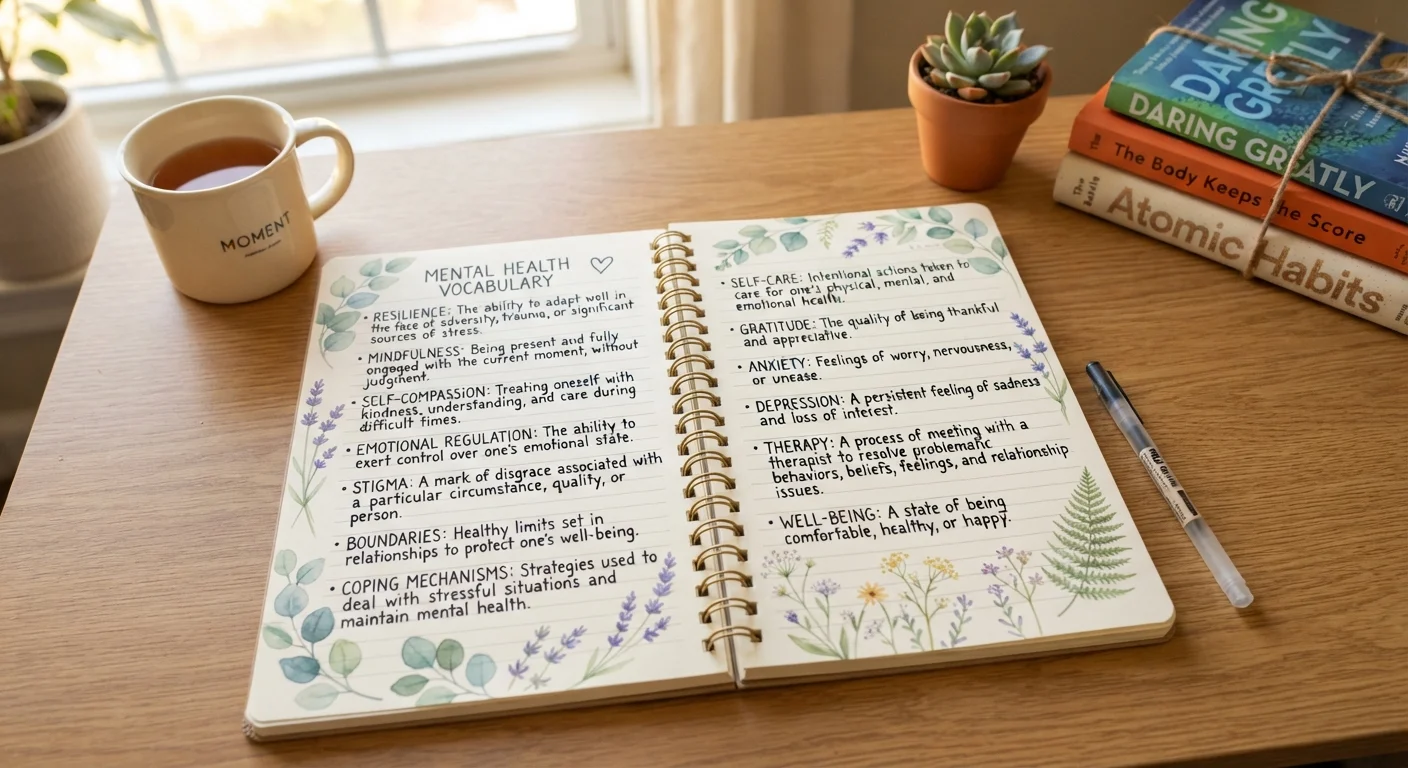 MOMENT
MENTAL HEALTH
VOCABULARY
• RESILIENCE: The ability to adapt well in
the face of adversity, trauma, or significant
sources of stress.
• MINDFULNESS: Being present and fully
engaged with the current moment, without
judgment.
• SELF-COMPASSION: Treating oneself with
kindness, understanding, and care during
difficult times.
• EMOTIONAL REGULATION: The ability to
exert control over one's emotional state.
• STIGMA: A mark of disgrace associated with
a particular circumstance, quality, or
person.
• BOUNDARIES: Healthy limits set in
relationships to protect one's well-being.
• COPING MECHANISMS: Strategies used to
deal with stressful situations and
maintain mental health.
• SELF-CARE: Intentional actions taken to
care for one's physical, mental, and
emotional health.
• GRATITUDE: The quality of being thankful
and appreciative.
• ANXIETY: Feelings of worry, nervousness,
or unease.
• DEPRESSION: A persistent feeling of sadness
and loss of interest.
• THERAPY: A process of meeting with a
therapist to resolve problematic
behaviors, beliefs, feelings, and relationship
issues.
• WELL-BEING: A state of being
comfortable, healthy, or happy.
DARING
GREATLY
DARING GREATLY
The Body Keeps the Score
The
Atomic Habits